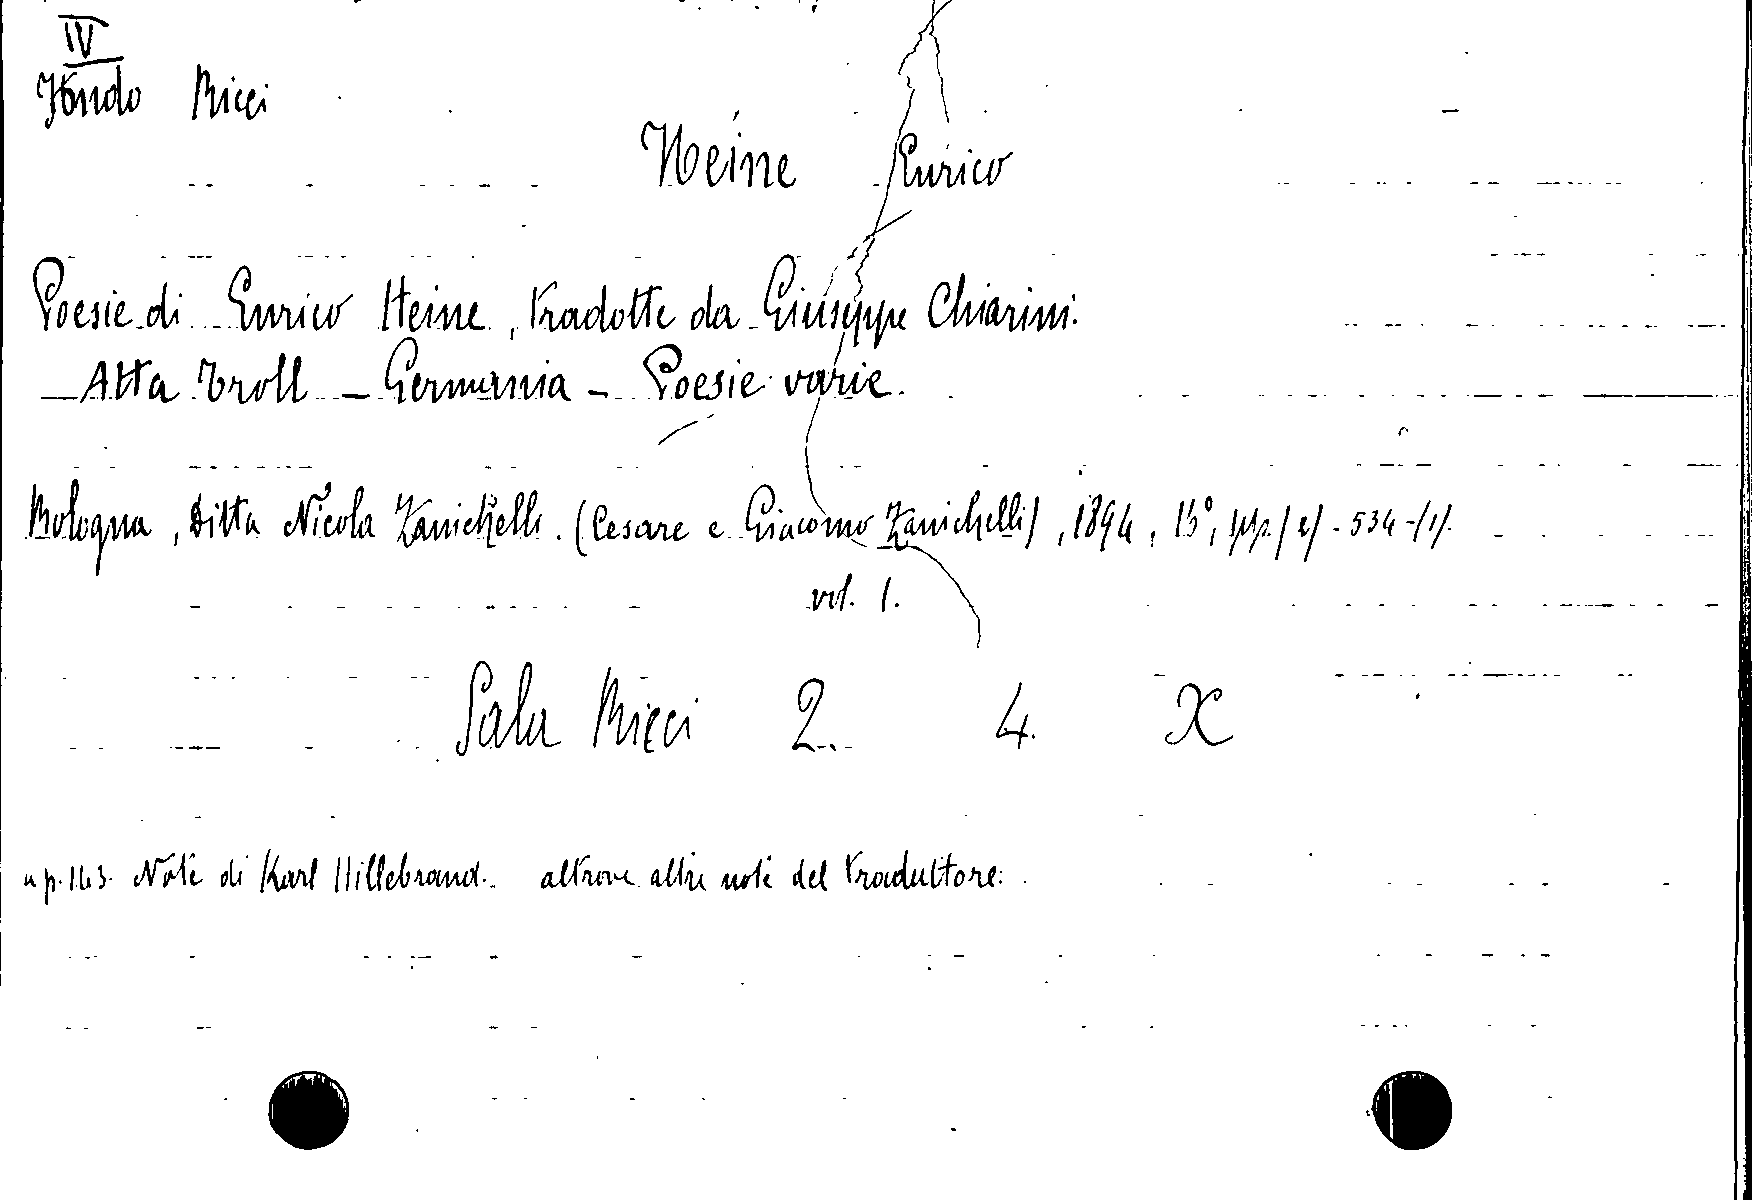 IV
Fondo Ricci
Heine Enrico
Poesie di Enrico Heine, tradotte da Giuseppe Chiarini.
— Atta Troll — Germania — Poesie varie.
Bologna, Ditta Nicola Zanichelli. (Cesare e Giacomo Zanichelli), 1894, 13°, pp.
vol. 1.
Sala Ricci 2. 4. X
a p. 163. Note di Karl Hillebrand. altrove altre note del traduttore.